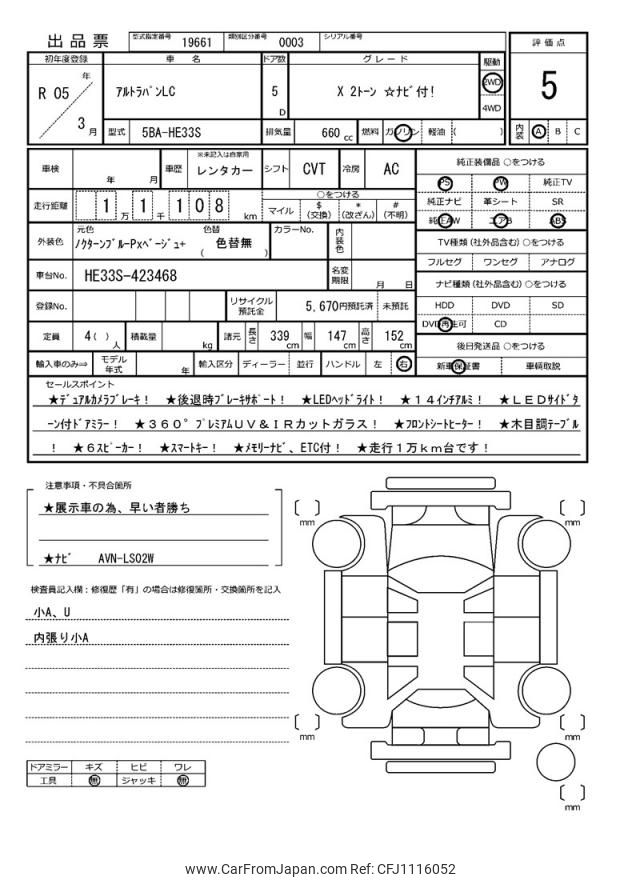 出品票 型式指定番号 19661 類別区分番号 0003 シリアル番号
評価点
5
内装 A B C
初年度登録 車名 ドア数 グレード 駆動
R 05 年 3 月
ｱﾙﾄﾗﾊﾟﾝLC 5 D X 2トーン ☆ナビ付! 2WD 4WD
型式 5BA-HE33S 排気量 660 cc 燃料 ガソリン 軽油 ( )
車検 年 月 車歴 ※未記入は自家用 レンタカー シフト CVT 冷房 AC
走行距離 1 万 1 千 1 0 8 km
○をつける
マイル $(交換) *(改ざん) #(不明)
外装色 元色 ﾉｸﾀｰﾝﾌﾞﾙｰPxﾍﾞｰｼﾞｭ+ 色替 ( 色替無 ) カラーNo. 内装色
車台No. HE33S-423468 名変期限 月 日
登録No. リサイクル預託金 5,670円預託済 未預託
定員 4( ) 人 積載量 kg 諸元 長さ 339 cm 幅 147 cm 高さ 152 cm
輸入車のみ⇒ モデル年式 年 輸入区分 ディーラー 並行 ハンドル 左 右
純正装備品 ○をつける
PS PW 純正TV
純正ナビ 革シート SR
純正AW エアB ABS
TV種類 (社外品含む) ○をつける
フルセグ ワンセグ アナログ
ナビ種類 (社外品含む) ○をつける
HDD DVD SD
DVD再生可 CD
後日発送品 ○をつける
新車保証書 車輌取説
セールスポイント
★ﾃﾞｭｱﾙｶﾒﾗﾌﾞﾚｰｷ! ★後退時ﾌﾞﾚｰｷｻﾎﾟｰﾄ! ★LEDﾍｯﾄﾞﾗｲﾄ! ★１４インチアルミ! ★ＬＥＤサイドタ
ーン付ドアミラー! ★３６０°ﾌﾟﾚﾐｱﾑＵＶ＆ＩＲカットガラス! ★ﾌﾛﾝﾄｼｰﾄﾋｰﾀｰ! ★木目調テーブル
! ★６ｽﾋﾟｰｶｰ! ★ｽﾏｰﾄｷｰ! ★ﾒﾓﾘｰﾅﾋﾞ、ETC付! ★走行１万ｋｍ台です!
注意事項・不具合箇所
★展示車の為、早い者勝ち
★ﾅﾋﾞ AVN-LS02W
検査員記入欄：修復歴「有」の場合は修復箇所・交換箇所を記入
小A、U
内張り小A
mm
mm
mm
mm
mm
ドアミラー キズ ヒビ ワレ
工具 無 ジャッキ 無
www.CarFromJapan.com Ref: CFJ1116052